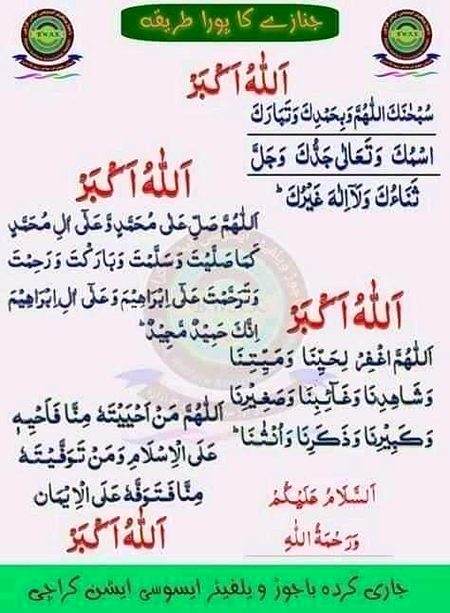 جنازے کا پورا طریقہ
اَللّٰهُ اَكْبَرْ
سُبْحٰنَكَ اللّٰهُمَّ وَبِحَمْدِكَ وَتَبَارَكَ
اسْمُكَ وَتَعَالٰى جَدُّكَ وَجَلَّ
ثَنَاءُكَ وَلَآ اِلٰهَ غَيْرُكَ ط
اَللّٰهُ اَكْبَرْ
اَللّٰهُمَّ صَلِّ عَلٰى مُحَمَّدٍ وَّعَلٰى اٰلِ مُحَمَّدٍ
كَمَا صَلَّيْتَ وَسَلَّمْتَ وَبَارَكْتَ وَرَحِمْتَ
وَتَرَحَّمْتَ عَلٰى اِبْرَاهِيْمَ وَعَلٰى اٰلِ اِبْرَاهِيْمَ
اِنَّكَ حَمِيْدٌ مَّجِيْدٌ ط
اَللّٰهُ اَكْبَرْ
اَللّٰهُمَّ اغْفِرْ لِحَيِّنَا وَمَيِّتِنَا
وَشَاهِدِنَا وَغَآئِبِنَا وَصَغِيْرِنَا
وَكَبِيْرِنَا وَذَكَرِنَا وَاُنْثٰنَا ط
اَللّٰهُمَّ مَنْ اَحْيَيْتَهٗ مِنَّا فَاَحْيِهٖ
عَلَى الْاِسْلَامِ وَمَنْ تَوَفَّيْتَهٗ
مِنَّا فَتَوَفَّهٗ عَلَى الْاِيْمَان
اَللّٰهُ اَكْبَرْ
اَلسَّلَامُ عَلَيْكُمْ
وَرَحْمَةُ اللّٰهِ
جاری کردہ باجوڑ ویلفیئر ایسوسی ایشن کراچی